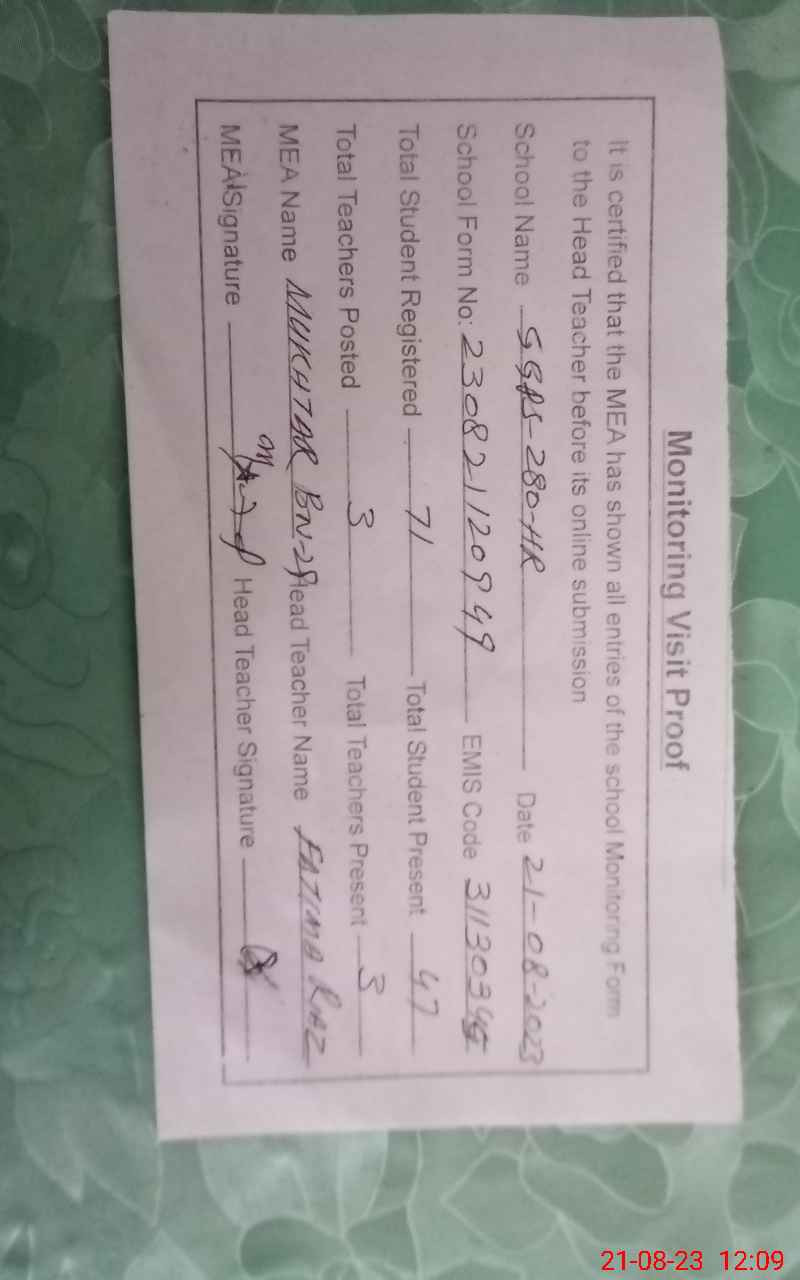 Monitoring Visit Proof
It is certified that the MEA has shown all entries of the school Monitoring Form
to the Head Teacher before its online submission
School Name GGPS-280-HR Date 21-08-2023
School Form No: 230821120949 EMIS Code 3113034
Total Student Registered 71 Total Student Present 47
Total Teachers Posted 3 Total Teachers Present 3
MEA Name MUKHTAR BN-29 Head Teacher Name FATIMA RAZ
MEA Signature Head Teacher Signature
21-08-23 12:09